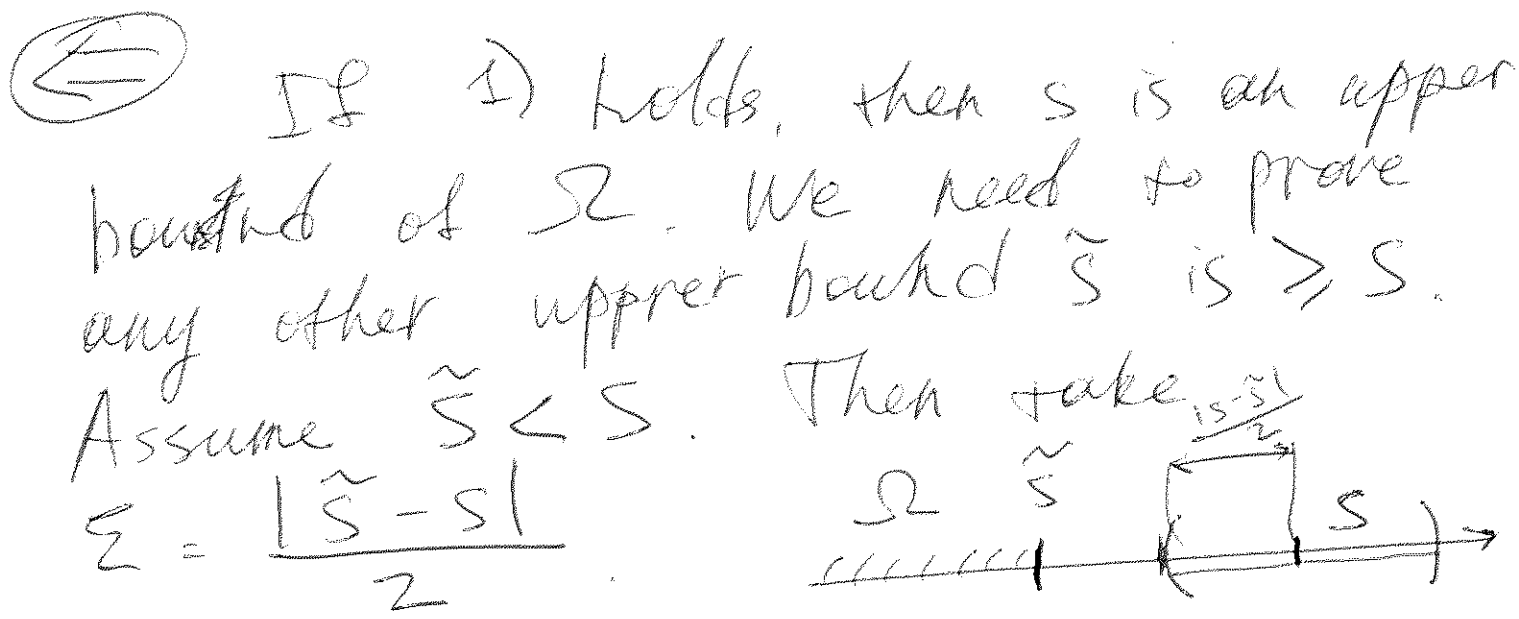 ⇐ If 1) holds, then s is an upper
bound of Ω. We need to prove
any other uppret bound s̃ is ⩾ s.
Assume s̃ < s. Then take
ε = |s̃ - s| / 2 .
|s-s̃| / 2
Ω s̃ ( s )